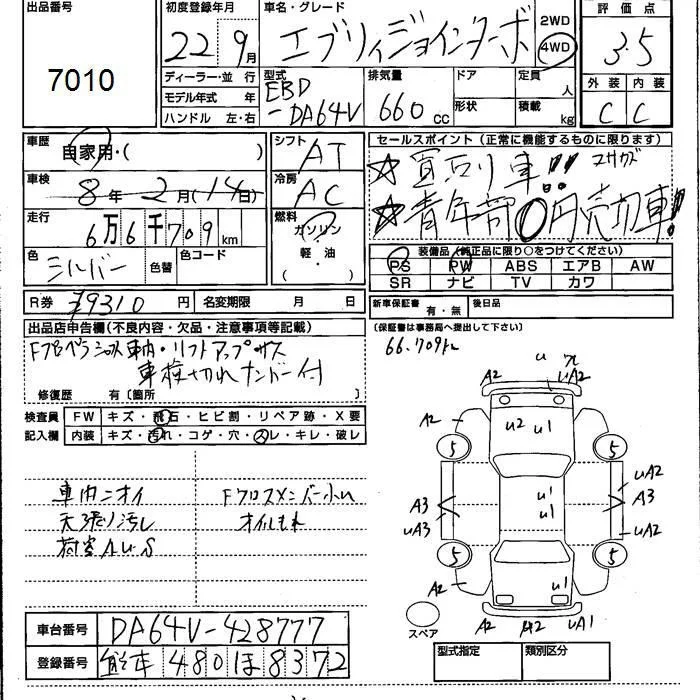 出品番号 初度登録年月 車名・グレード 評価点
7010 22 9月 エブリィジョインターボ 2WD 4WD 3.5
ディーラー・並行 型式 排気量 ドア 定員 人 外装 内装
モデル年式 年 EBD
ハンドル 左・右 -DA64V 660 CC 形状 積載 kg C C
車歴 自家用・( ) シフト AT セールスポイント(正常に機能するものに限ります)
車検 8年2月(14日) 冷房 AC ☆買取り車!!
走行 6万6千709km 燃料 ガソリン 軽油 ( ) ☆ 円売切車!
色 シルバー 色替 色コード 装備品(純正品に限り○をつけてください)
PS PW ABS エアB AW
SR ナビ TV カワ
R券 ¥9310円 名変期限 月 日 新車保証書 有・無 後日品
出品店申告欄(不良内容・欠品・注意事項等記載) (保証書は事務局へ提出して下さい)
車内・リフトアップ 66.709km
車検切れナンバー付
修復歴 有〔箇所 〕
検査員 FW キズ・飛石・ヒビ割・リペア跡・X要
記入欄 内装 キズ・汚れ・コゲ・穴・スレ・キレ・破レ
車内ニオイ Fクロスメンバー小U
天張り汚レ オイルもれ
荷室A.U.S
u
A2 uA2
A2 u2 u1
5 5
u1 uA2
A3 u1 A3
uA3 uA2
5 5
u1
A2 u1 A2
A2 A2 uA1
スペア
車台番号 DA64V-428777 型式指定 類別区分
登録番号 熊本 480 ほ 8372